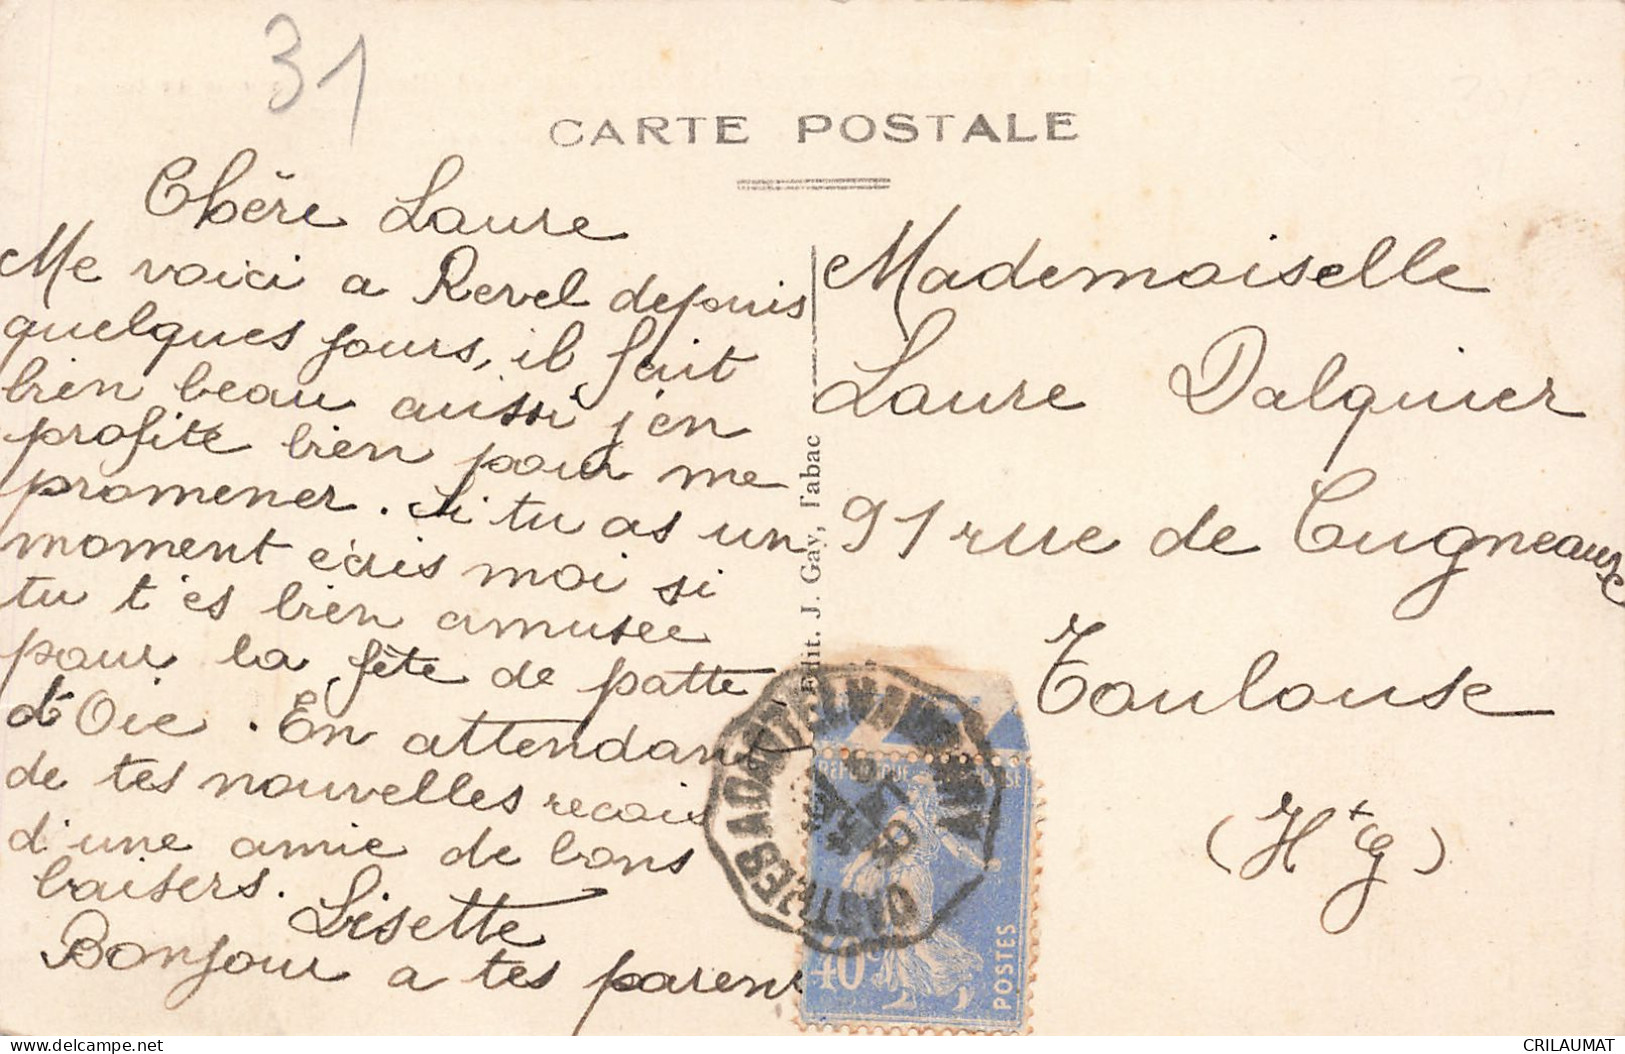 31
CARTE POSTALE
Chère Laure
Me voici a Revel depuis
quelques jours, il fait
bien beau aussi j'en
profite bien pour me
promener. Si tu as un
moment écris moi si
tu t'es bien amusée
pour la fête de patte
d'Oie. En attendant
de tes nouvelles recois
d'une amie de bons
baisers. Lisette
Bonjour a tes parents
Edit. J. Gay, Tabac
Mademoiselle
Laure Dalquier
91 rue de Cugneaux
Toulouse
(Hte G)
CASTRES A
40c
POSTES
delcampe.net
CRILAUMAT